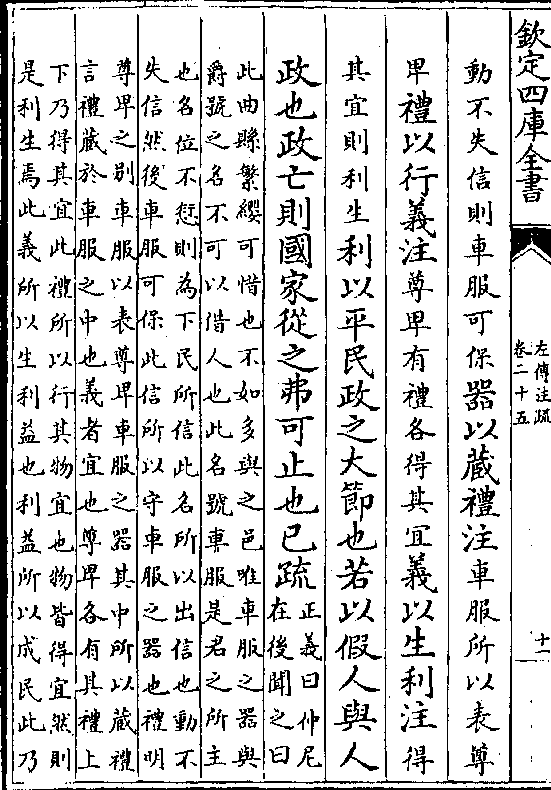 欽定四庫全書
左傳注疏
卷二十五
十一
動不失信則車服可保器以藏禮注車服所以表尊
卑禮以行義注尊卑有禮各得其宜義以生利注得
其宜則利生利以平民政之大節也若以假人與人
政也政亡則國家從之弗可止也已疏正義曰仲尼
在後聞之曰
此曲縣繁纓可惜也不如多與之邑唯車服之器與
爵號之名不可以借人也此名號車服是君之所主
也名位不愆則為下民所信此名所以出信也動不
失信然後車服可保此信所以守車服之器也禮明
尊卑之别車服以表尊卑車服之器其中所以藏禮
言禮藏於車服之中也義者宜也尊卑各有其禮上
下乃得其宜此禮所以行其物宜也物皆得宜然則
是利生焉此義所以生利益也利益所以成民此乃